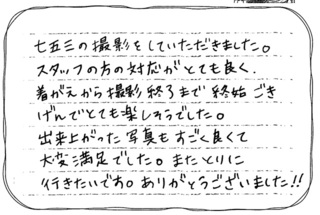 七五三の撮影をしていただきました。
スタッフの方の対応がとても良く、
着がえから撮影終了まで終始ごき
げんでとても楽しそうでした。
出来上がった写真もすごく良くて
大変満足でした。またとりに
行きたいです。ありがとうございました!!